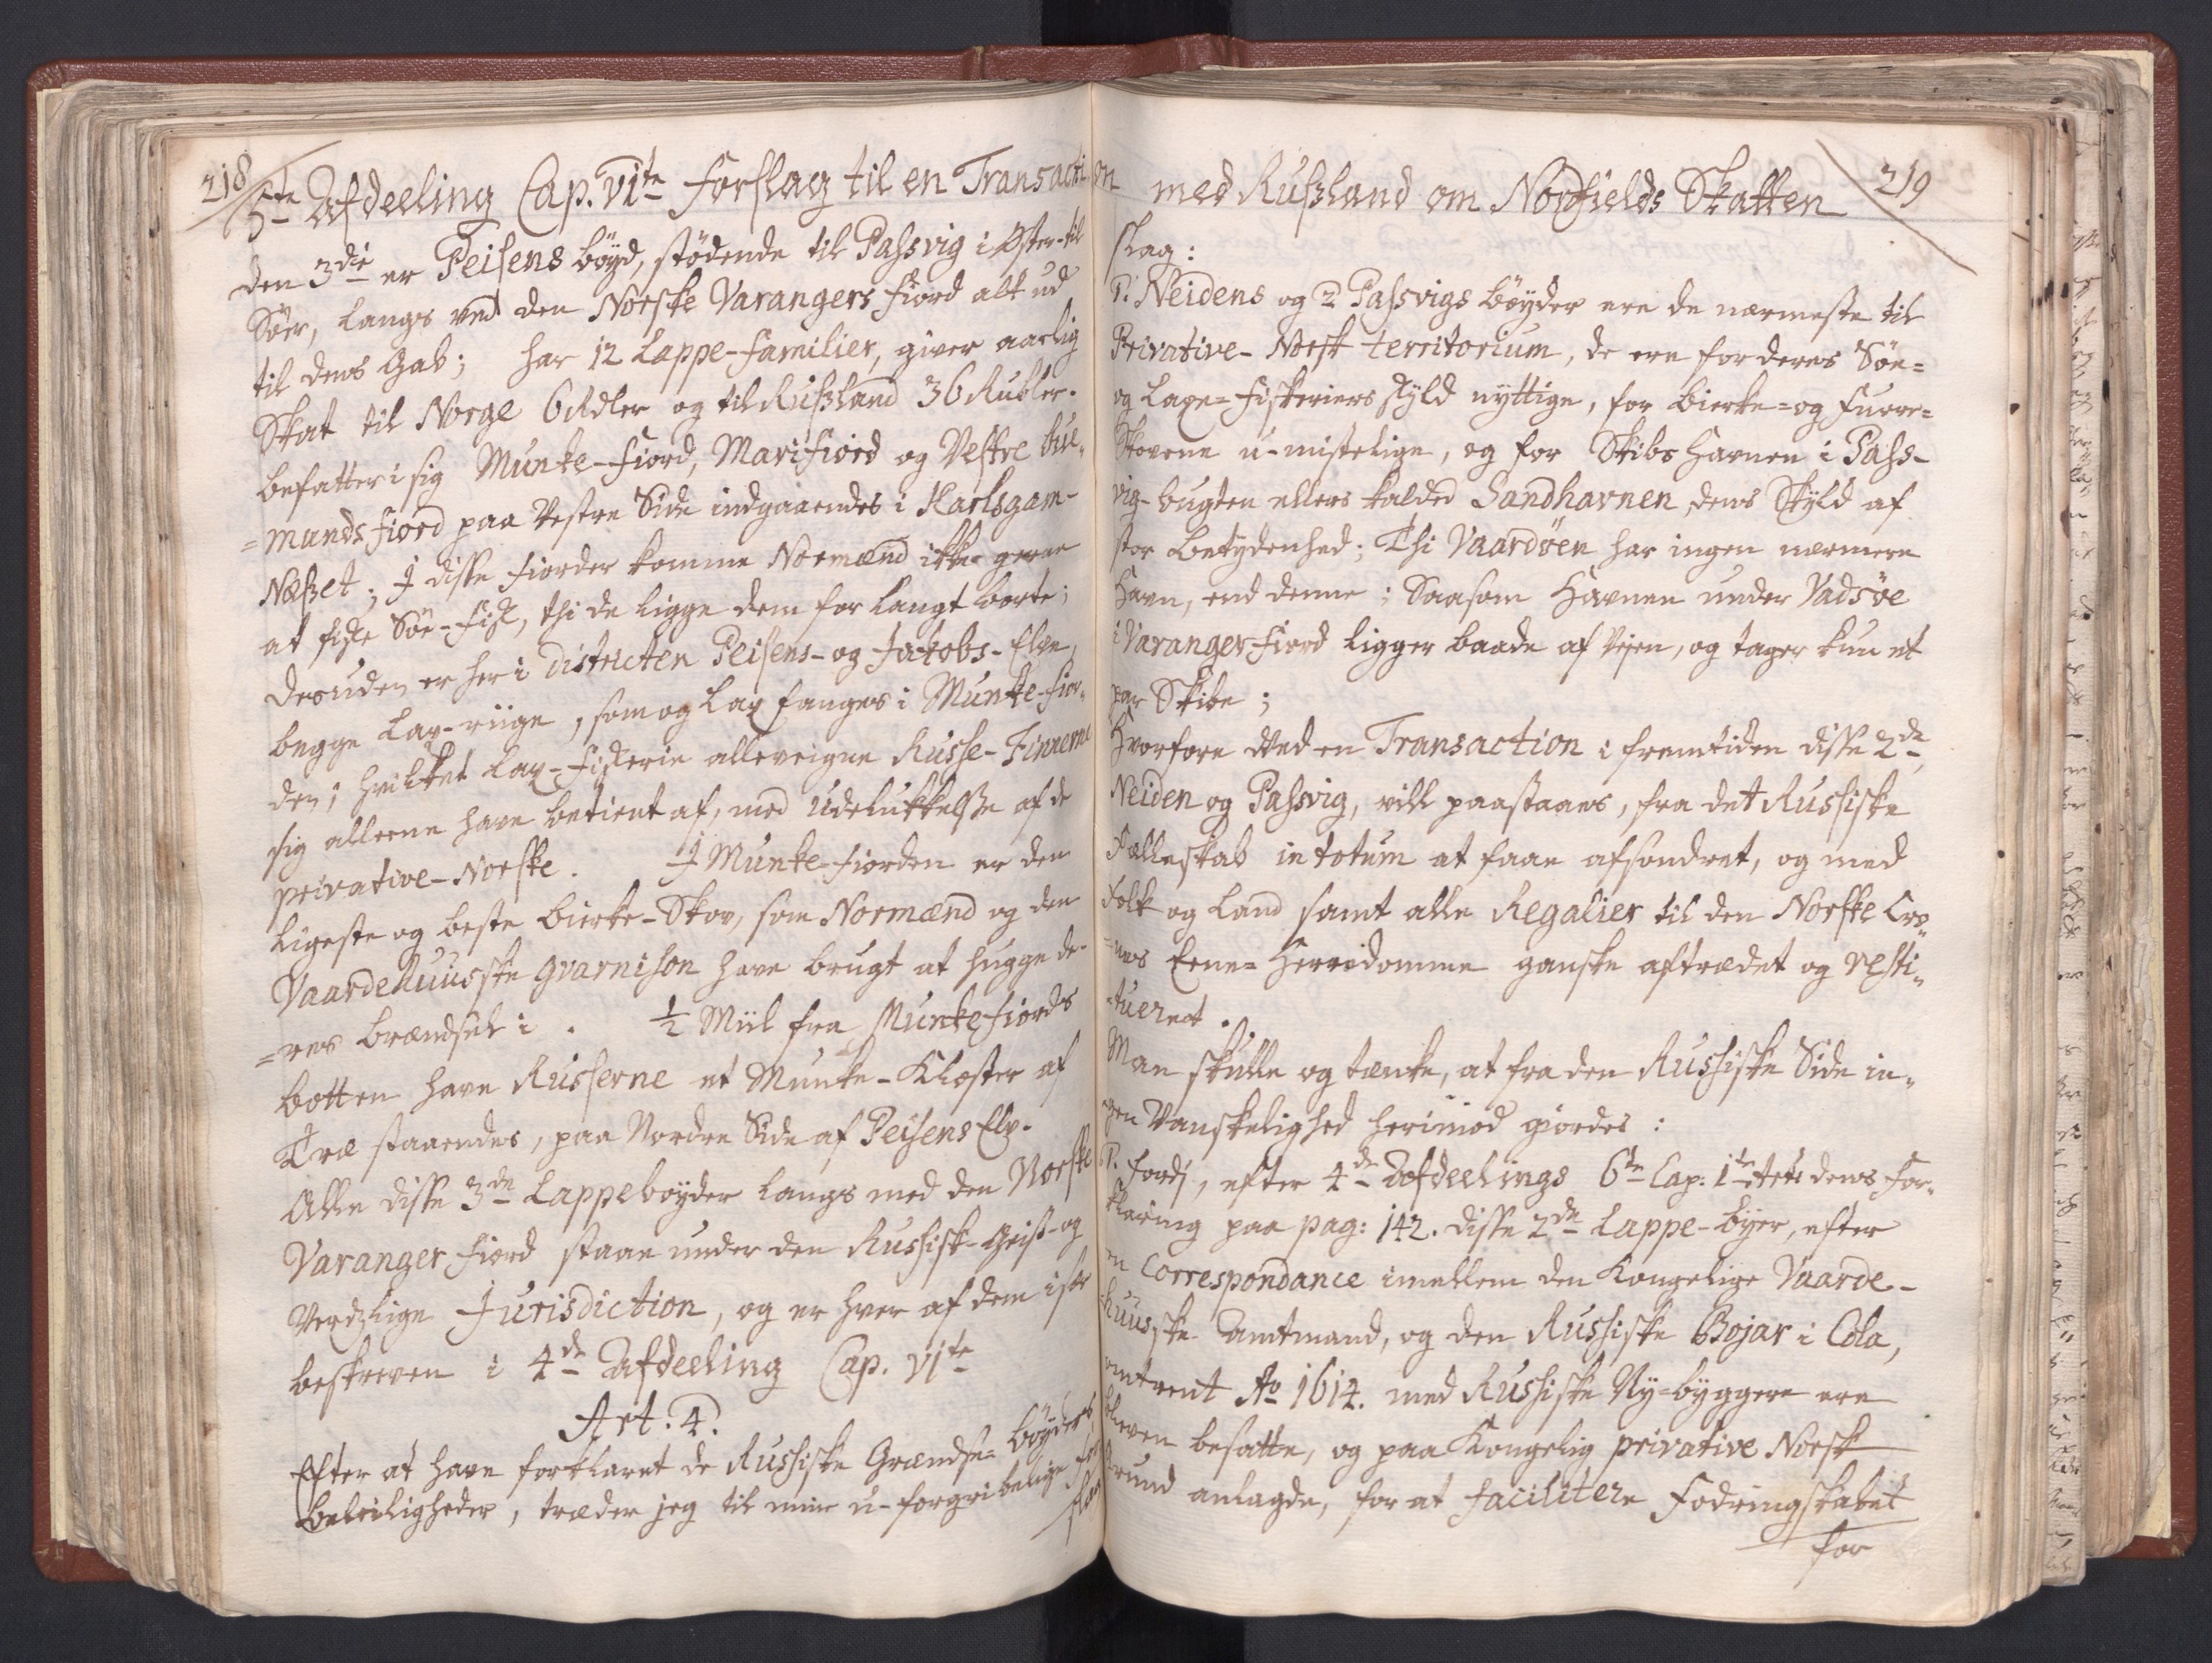 218
5te Afdeeling Cap. VIte Forslag til en Transacti
den 3die er Peisens böyd, stödende til Passvig i Øster-til
Söer, langs ved den Norske Varangers fiord alt ud
til dens Gab; har 12 Lappe-familier, giver aarlig
Skat til Norge 6 Rdler og til Rusland 36 Rubler.
befatter i sig Munke-fiord, Marifiord og Vestre bue-
=mandsfiord paa Vestre Side indgaaendes i Karlsgam-
Næsset; I disse fiorder komme Normænd ikke gerne
at fiske Söe-fisk, thi de ligge dem for langt borte;
desuden er her i Districten Peisens- og Jakobs-Elve,
begge Lax-riige, som og Lax fanges i Munke-fior-
den; hvilket Lax-fiskerie alleveigne Russe-Finnerne
sig alleene have betient af, med Udelukkelse af de
privative-Norske. I Munke-fiorden er den
ligeste og beste bierke-Skov, som Normænd og den
Vaardehuusske gvarnison have brugt at hugge de-
=res brændsel i. ½ Miil fra Munkefiords
botten have Russerne et Munke-Kloster af
Træ staaendes, paa Nordre Side af Peisens Elv.
Alle disse 3de Lappeböyder langs med den Norske
Varanger fiord staae under den Russisk-Geist- og
Verdslige Jurisdiction, og er hver af dem især
beskreven i 4de Afdeeling Cap. VIte
Art. 4.
Efter at have forklaret de Russiske Grændse-böyders
beleiligheder, træder jeg til mine u-forgribelige For
slag
on med Rusland om Nordfields Skatten
219
slag:
1. Neidens og 2 Passvigs böyder ere de nærmeste til
Privative-Norsk territorium, de ere for deres Söe-
og Laxe-fiskeriers skyld nyttige, for bierke- og Furre-
Skovene u-mistelige, og for Skibs Havnen i Pass-
vig-bugten ellers kalded Sandhavnen, dens Skyld af
stor betydenhed; Thi Vaardöen har ingen nærmere
Havn, end denne; Saasom Havnen under Vadsöe
i Varanger-fiord ligger baade af Veien, og tager kun et
par Skibe;
Hvorfore ved en Transaction i fremtiden disse 2de,
Neiden og Passvig, vill paastaaes, fra det Russiske
Fælleskab in totum at faae afsondret, og med
Folk og Land samt alle Regalier til den Norske Cro-
=nes Eene-Herredomme ganske aftrædet og resti-
=tueret.
Man skulle og tænke, at fra den Russiske Side in-
=gen Vanskelighed herimod giordes:
1. fordj, efter 4de Afdeelings 6te Cap: 1ste Art: dens for-
klaring paa pag: 142. disse 2de Lappe-byer, efter
en Correspondance imellem den Kongelige Vaarde-
huusske Amtmand, og den Russiske Bojar i Cola,
omtrent Ao 1614. med Russiske Ny-byggere ere
bleven besatte, og paa Kongelig privative Norsk
Grund anlagde, for at facilitere Fodringskabet
for